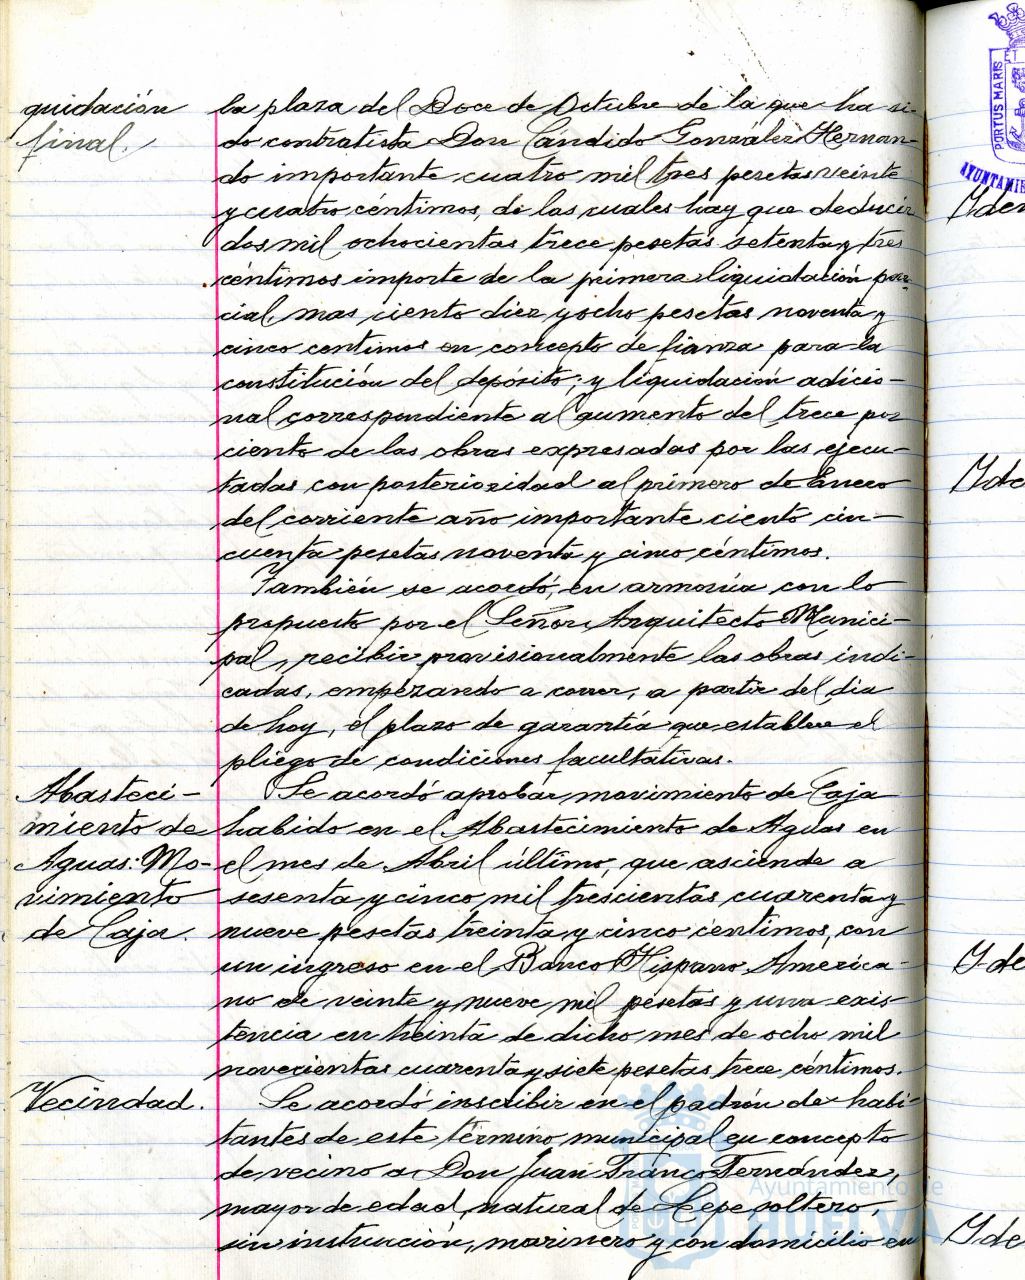 quidación
final.
la plaza del Doce de Octubre de la que ha si-
do contratista Don Cándido González Hernan-
do importante cuatro mil tres pesetas veinte
y cuatro céntimos, de las cuales hay que deducir
dos mil ochocientas trece pesetas setenta y tres
céntimos importe de la primera liquidación par-
cial, mas ciento diez y ocho pesetas noventa y
cinco centimos en concepto de fianza para la
constitución del depósito; y liquidación adicio-
nal correspondiente al aumento del trece por
ciento de las obras expresadas por las ejecu-
tadas con posterioridad al primero de Enero
del corriente año importante ciento cin-
cuenta pesetas noventa y cinco céntimos.
También se acordó, en armonía con lo
propuesto por el Señor Arquitecto Munici-
pal, recibir provisionalmente las obras indi-
cadas, empezando a correr, a partir del dia
de hoy, el plazo de garantía que establece el
pliego de condiciones facultativas.
Abasteci-
miento de
Aguas: Mo-
vimiento
de Caja.
Se acordó aprobar movimiento de Caja
habido en el Abastecimiento de Aguas en
el mes de Abril último, que asciende a
sesenta y cinco mil trescientas cuarenta y
nueve pesetas treinta y cinco céntimos, con
un ingreso en el Banco Hispano America-
no de veinte y nueve mil pesetas y una exis-
tencia en treinta de dicho mes de ocho mil
novecientas cuarenta y siete pesetas trece céntimos.
Vecindad.
Se acordó inscribir en el padrón de habi-
tantes de este término municipal en concepto
de vecino a Don Juan Franco Fernández,
mayor de edad, natural de Lepe, soltero,
sin instrucción, marinero y con domicilio en
PORTUS MARIS
Ayuntamiento de
HUELVA